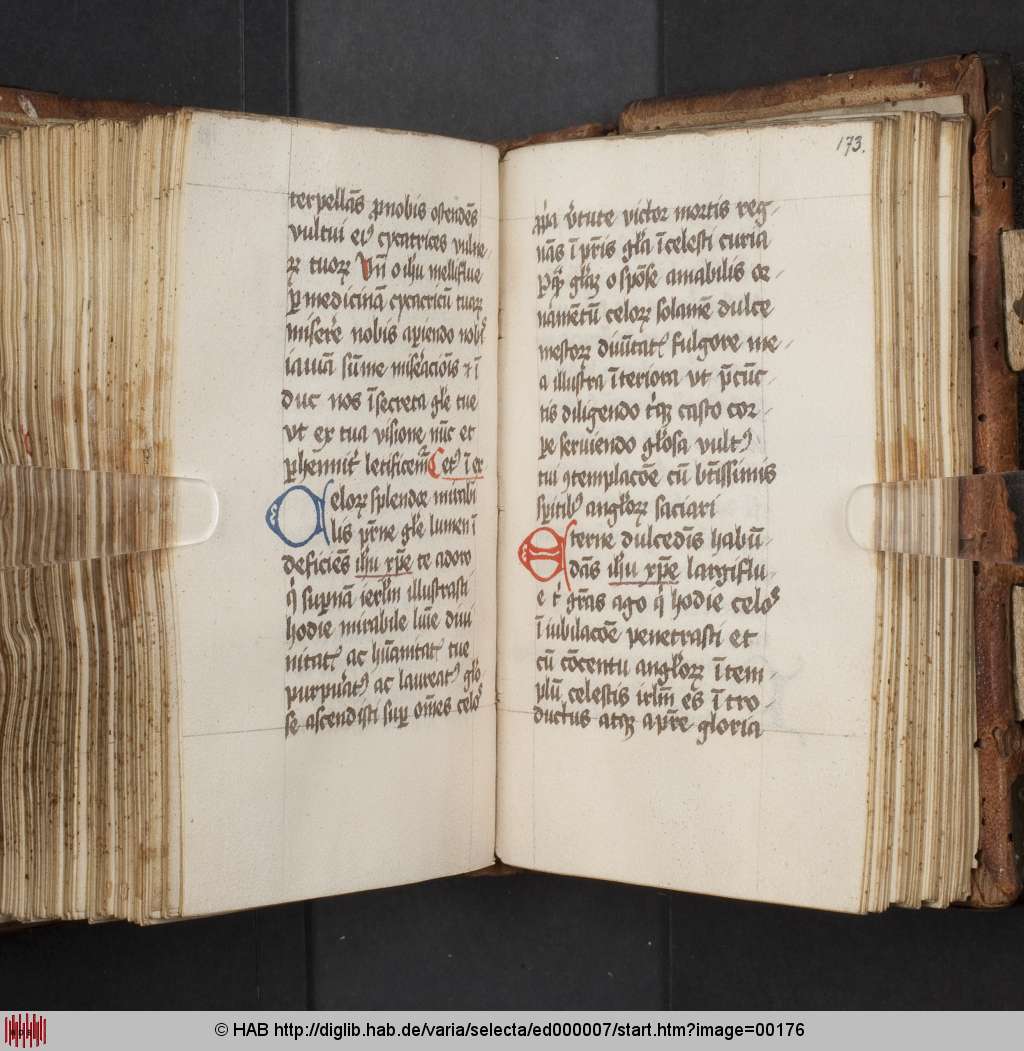 terpellās ꝓ nobis ostendēs
vultui eiꝰ cycatrices vulne-
rꝝ tuorꝝ Vn̄ o ih̄u melliflue
ꝑ medicinā cycatricū tuarꝝ
miserēre nobis aꝑiendo nobꝭ
ianuā sūme misẽracioīs ⁊ ī
duc nos ī secreta gl̄e tue
vt ex tua visione nūc et
ꝑhēnnitᷣ letificemᷣ Cetꝰ ī et
Celorꝝ splendor mirabi
lis pr̄ne gl̄e lumen ī
deficiēs ih̄u xp̄e te adoro
qͥ suꝑnā ierl̄m illustrasti
hodie mirabile lum̄e divi
nitatꝭ ac hūanitatꝭ tue
purpuratꝰ ac laureatꝰ gl̓o
se ascendisti suꝑ om̄es celoꝭ
173.
ꝓpͥa v̓tute victor mortis reg-
nās ī pr̄is gl̄ia ī celesti curia
ꝑ qͣꝫ gl̓iaꝫ o spōse amabilis or
namētū celorꝝ solamē dulce
mestorꝝ divīitatꝭ fulgore me-
a illustra īteriora vt p̄cūc-
tis diligendo tͥqꝫ casto cor-
pe serviendo gl̓iosa vultꝰ
tui ꝯtemplacōe cū btīssimis
spiritibꝰ angl̓orꝝ saciari
Eterne dulcedīs habū-
dās ih̄u xp̄e largiflu-
e tͥ gr̄as ago qͥ hodie celoꝭ
ī iubilacōe penetrasti et
cū cōcentu angl̓orꝝ ī tem-
plū celestis irl̄m es ītro-
ductus atqꝫ a pr̄e gloria
© HAB http://diglib.hab.de/varia/selecta/ed000007/start.htm?image=00176